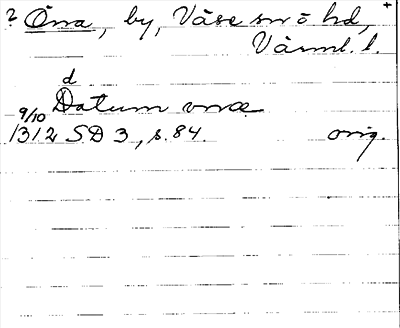 ? Öna, by, Väse sn o hd, +
Värml. l.
d
Datum vnæ
9/10
1312 SD 3, s. 84. orig.